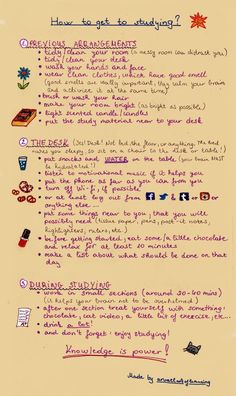 How to get to studying?
① PREVIOUS ARRANGEMENTS
• tidy/clean your room (a messy room can distract you)
• tidy/clean your desk
• wash your hands and face
• wear clean clothes, which have good smell
(good smells are really important, they calm your brain
and activate it at the same time)
• brush or wash your hair
• make your room bright (as bright as possible)
• light scented candle/candles
• put the study material near to your desk
② THE DESK (Yes! Desk! Not bed, the floor, or anything. The bed
makes you sleepy, so sit on a chair in the desk or table!)
• put snacks and WATER on the table (your brain MUST
be hydrated!)
• listen to motivational music, if it helps you
• put the phone as far as you can from you
• turn off Wi-fi, if possible
• or at least log out from or
anything else...
• put some things near to you, that you will
possibly need (extra paper, pens, post-it notes,
highlighters, rulers, etc.)
• before getting started, eat some/a little chocolate
and relax for at least 10 minutes
• make a list about what should be done on that
day
③ DURING STUDYING
• work in small sections (around 20-40 mins)
(it helps your brain not to be overwhelmed)
• after one section treat yourself with something:
chocolate, cat video, a little bit of exercise, etc...
• drink a lot!
• and don't forget: enjoy studying!
Knowledge is power!
Made by